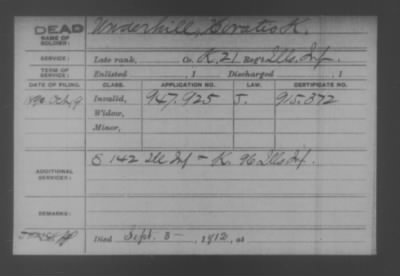 DEAD
NAME OF SOLDIER: Underhill, Horatio K.
SERVICE: Late rank, Co. K, 21 Reg't Ills. Inf.
TERM OF SERVICE: Enlisted , 1 Discharged , 1
DATE OF FILING. CLASS. APPLICATION NO. LAW. CERTIFICATE NO.
1890 Oct. 9 Invalid, 947.925 J. 915.372
Widow,
Minor,
ADDITIONAL SERVICES: G 142 Ill Inf - K. 96 Ills Inf.
REMARKS:
Died Sept. 3 - , 1912, at